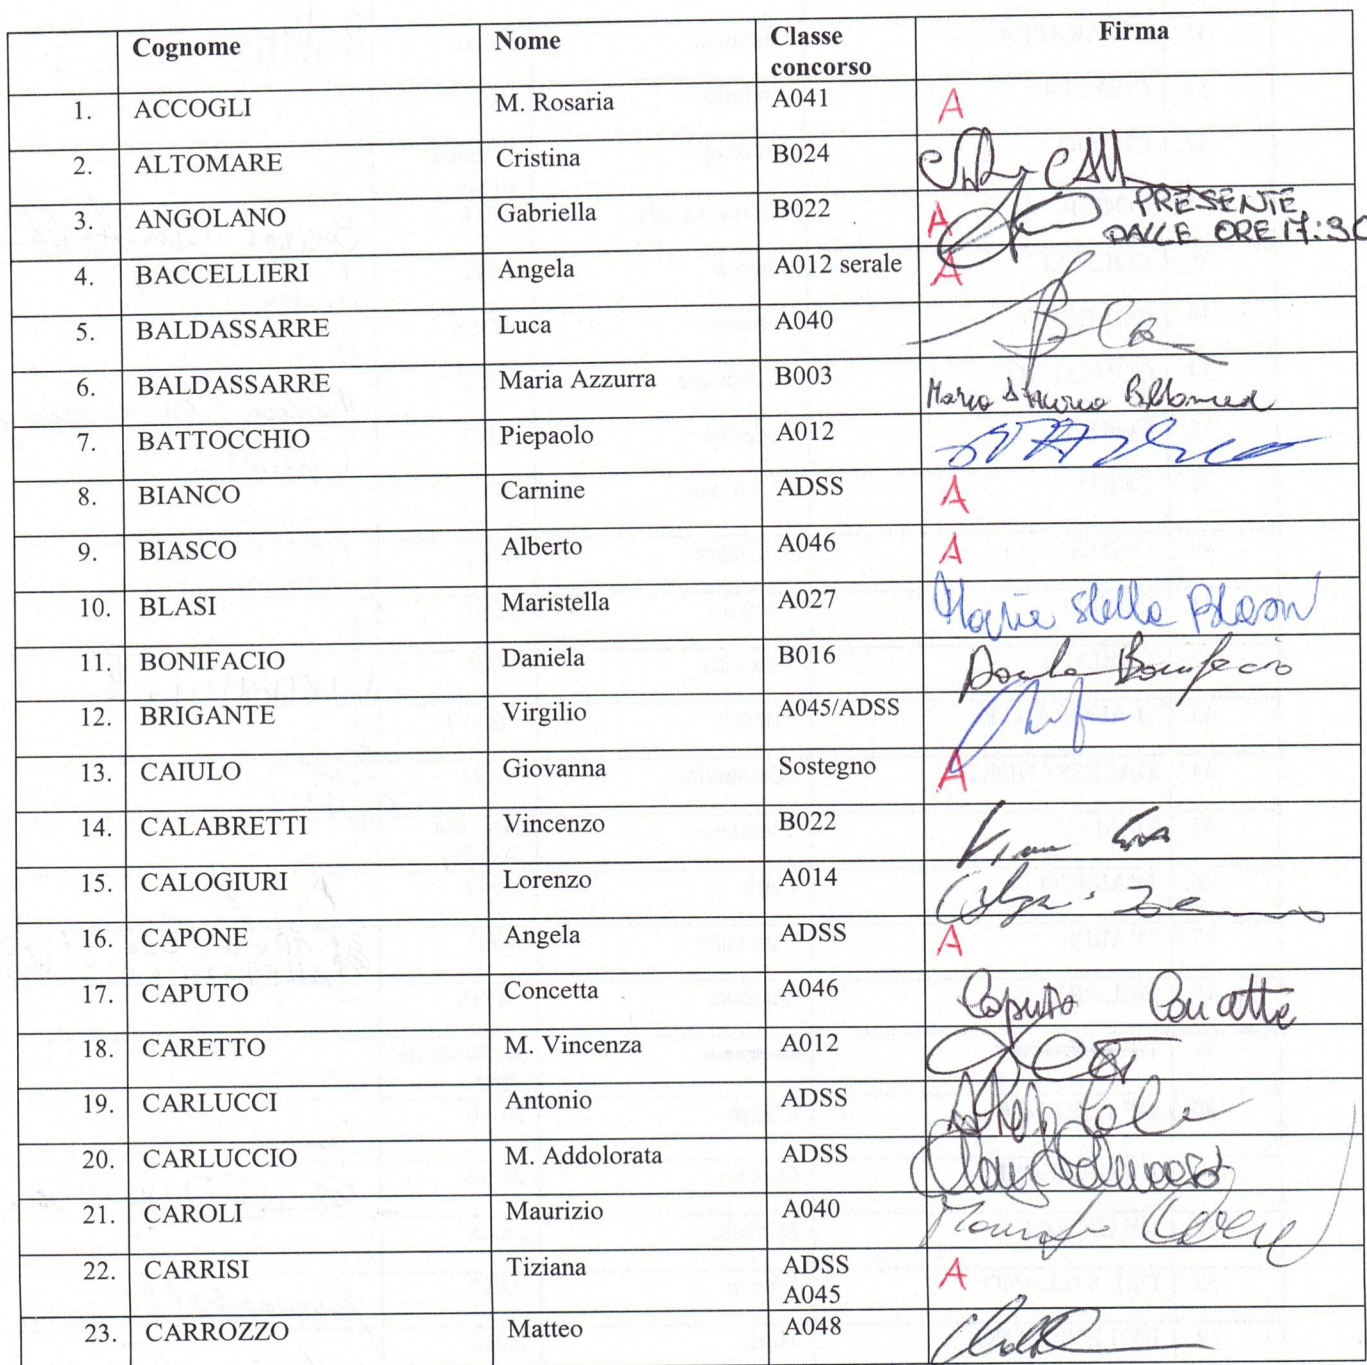 Cognome Nome Classe concorso Firma
1. ACCOGLI M. Rosaria A041 A
2. ALTOMARE Cristina B024
3. ANGOLANO Gabriella B022 A PRESENTE
DALLE ORE 17:30
4. BACCELLIERI Angela A012 serale A
5. BALDASSARRE Luca A040
6. BALDASSARRE Maria Azzurra B003
7. BATTOCCHIO Piepaolo A012
8. BIANCO Carnine ADSS A
9. BIASCO Alberto A046 A
10. BLASI Maristella A027 Maria Stella Blasi
11. BONIFACIO Daniela B016 Bonifacio
12. BRIGANTE Virgilio A045/ADSS
13. CAIULO Giovanna Sostegno A
14. CALABRETTI Vincenzo B022
15. CALOGIURI Lorenzo A014
16. CAPONE Angela ADSS A
17. CAPUTO Concetta A046 Caputo Concetta
18. CARETTO M. Vincenza A012
19. CARLUCCI Antonio ADSS
20. CARLUCCIO M. Addolorata ADSS
21. CAROLI Maurizio A040 Maurizio
22. CARRISI Tiziana ADSS A
A045
23. CARROZZO Matteo A048